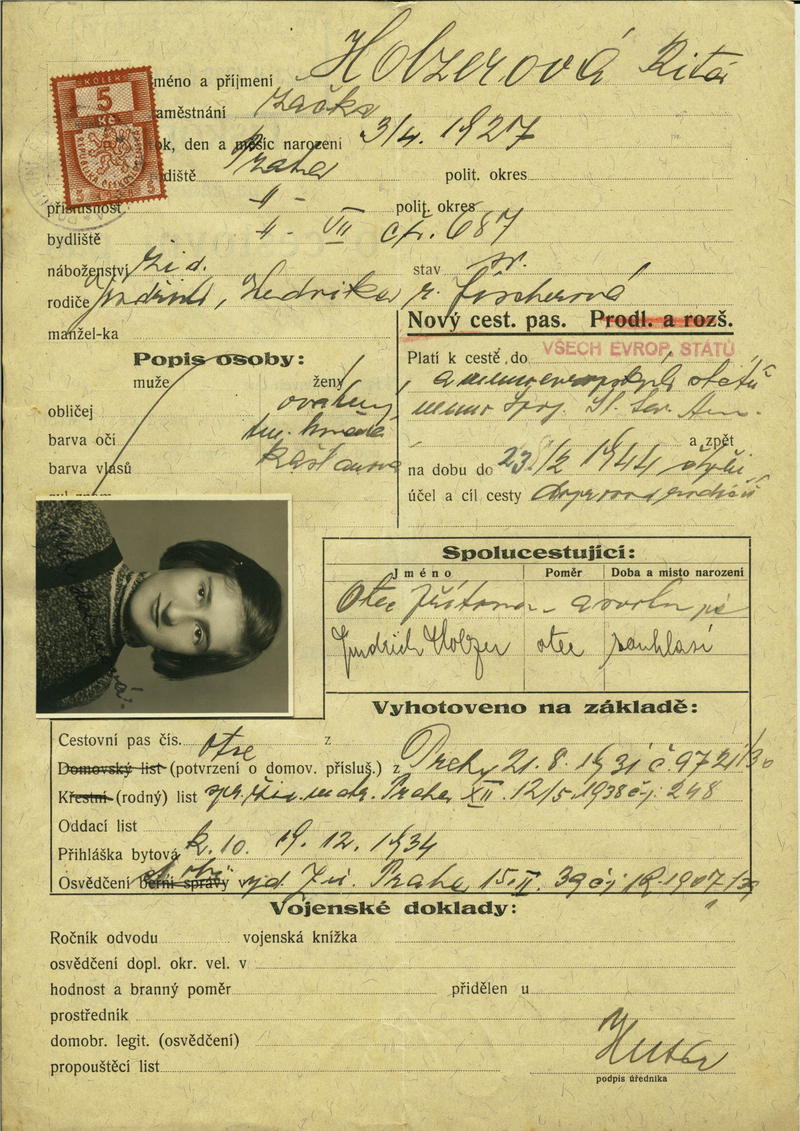 KOLEK
5
Kč
Jméno a příjmení Holzerová Rita
zaměstnání žačka
rok, den a měsíc narození 3/4. 1927
Praha polit. okres
příslušnost -"- polit. okres
bydliště -"- VII čp. 687
náboženství žid. stav sv.
rodiče Jindřich, Hedvika r. Fischerová
manžel-ka
Nový cest. pas. Prodl. a rozš.
Popis osoby:
muže ženy
obličej oválný
barva očí tm. hnědé
barva vlasů kaštanová
Platí k cestě do VŠECH EVROP. STÁTŮ
a mimoevropských států
mimo Spoj. St. Sev. Am.
a zpět
na dobu do 23/2 1944
účel a cíl cesty doprovod rodičů
Spolucestující:
Jméno Poměr Doba a místo narození
Otec přítomen a svoluje
Jindřich Holzer otec souhlasí
Vyhotoveno na základě:
Cestovní pas čís. otce z
Domovský list (potvrzení o domov. přísluš.) z Prahy 21. 8. 1931 č. 9721/30
Křestní (rodný) list žid. matr. Praha XII. 12/5. 1938 čj. 248
Oddací list
Přihláška bytová k. 10. 19. 12. 1934
Osvědčení berní správy vyd. Praha 15. II. 39 čj.
Vojenské doklady:
Ročník odvodu vojenská knížka
osvědčení dopl. okr. vel. v
hodnost a branný poměr přidělen u
prostředník
domobr. legit. (osvědčení)
propouštěcí list
podpis úředníka